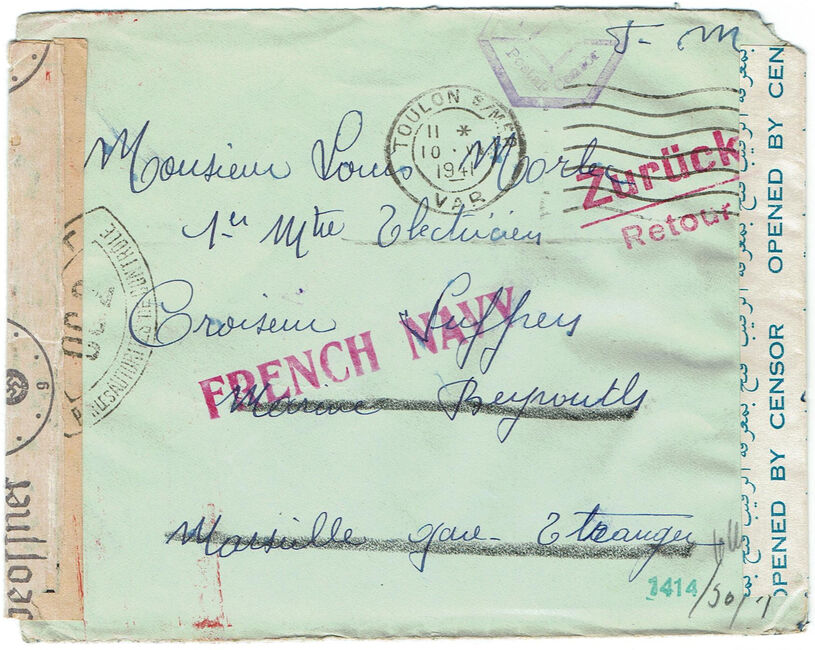 T. M
Postal Censor
TOULON S/MER
11 *
10 · VI
1941
VAR
Monsieur Louis
Zurück
Retour
1er Mtre Electricien
Croiseur Suffren
FRENCH NAVY
Marine Beyrouth
Marseille gare Etranger
1414
CONTROLE
geöffnet
OPENED BY CENSOR
OPENED BY CENSOR
فتح بمعرفة الرقيب